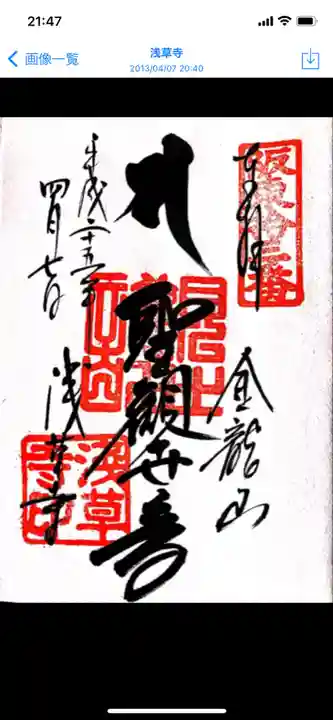 21:47
画像一覧
浅草寺
2013/04/07 20:40
坂東十三番
奉拝
金龍山
聖観世音
平成二十五年
四月七日
浅草寺
浅草寺印